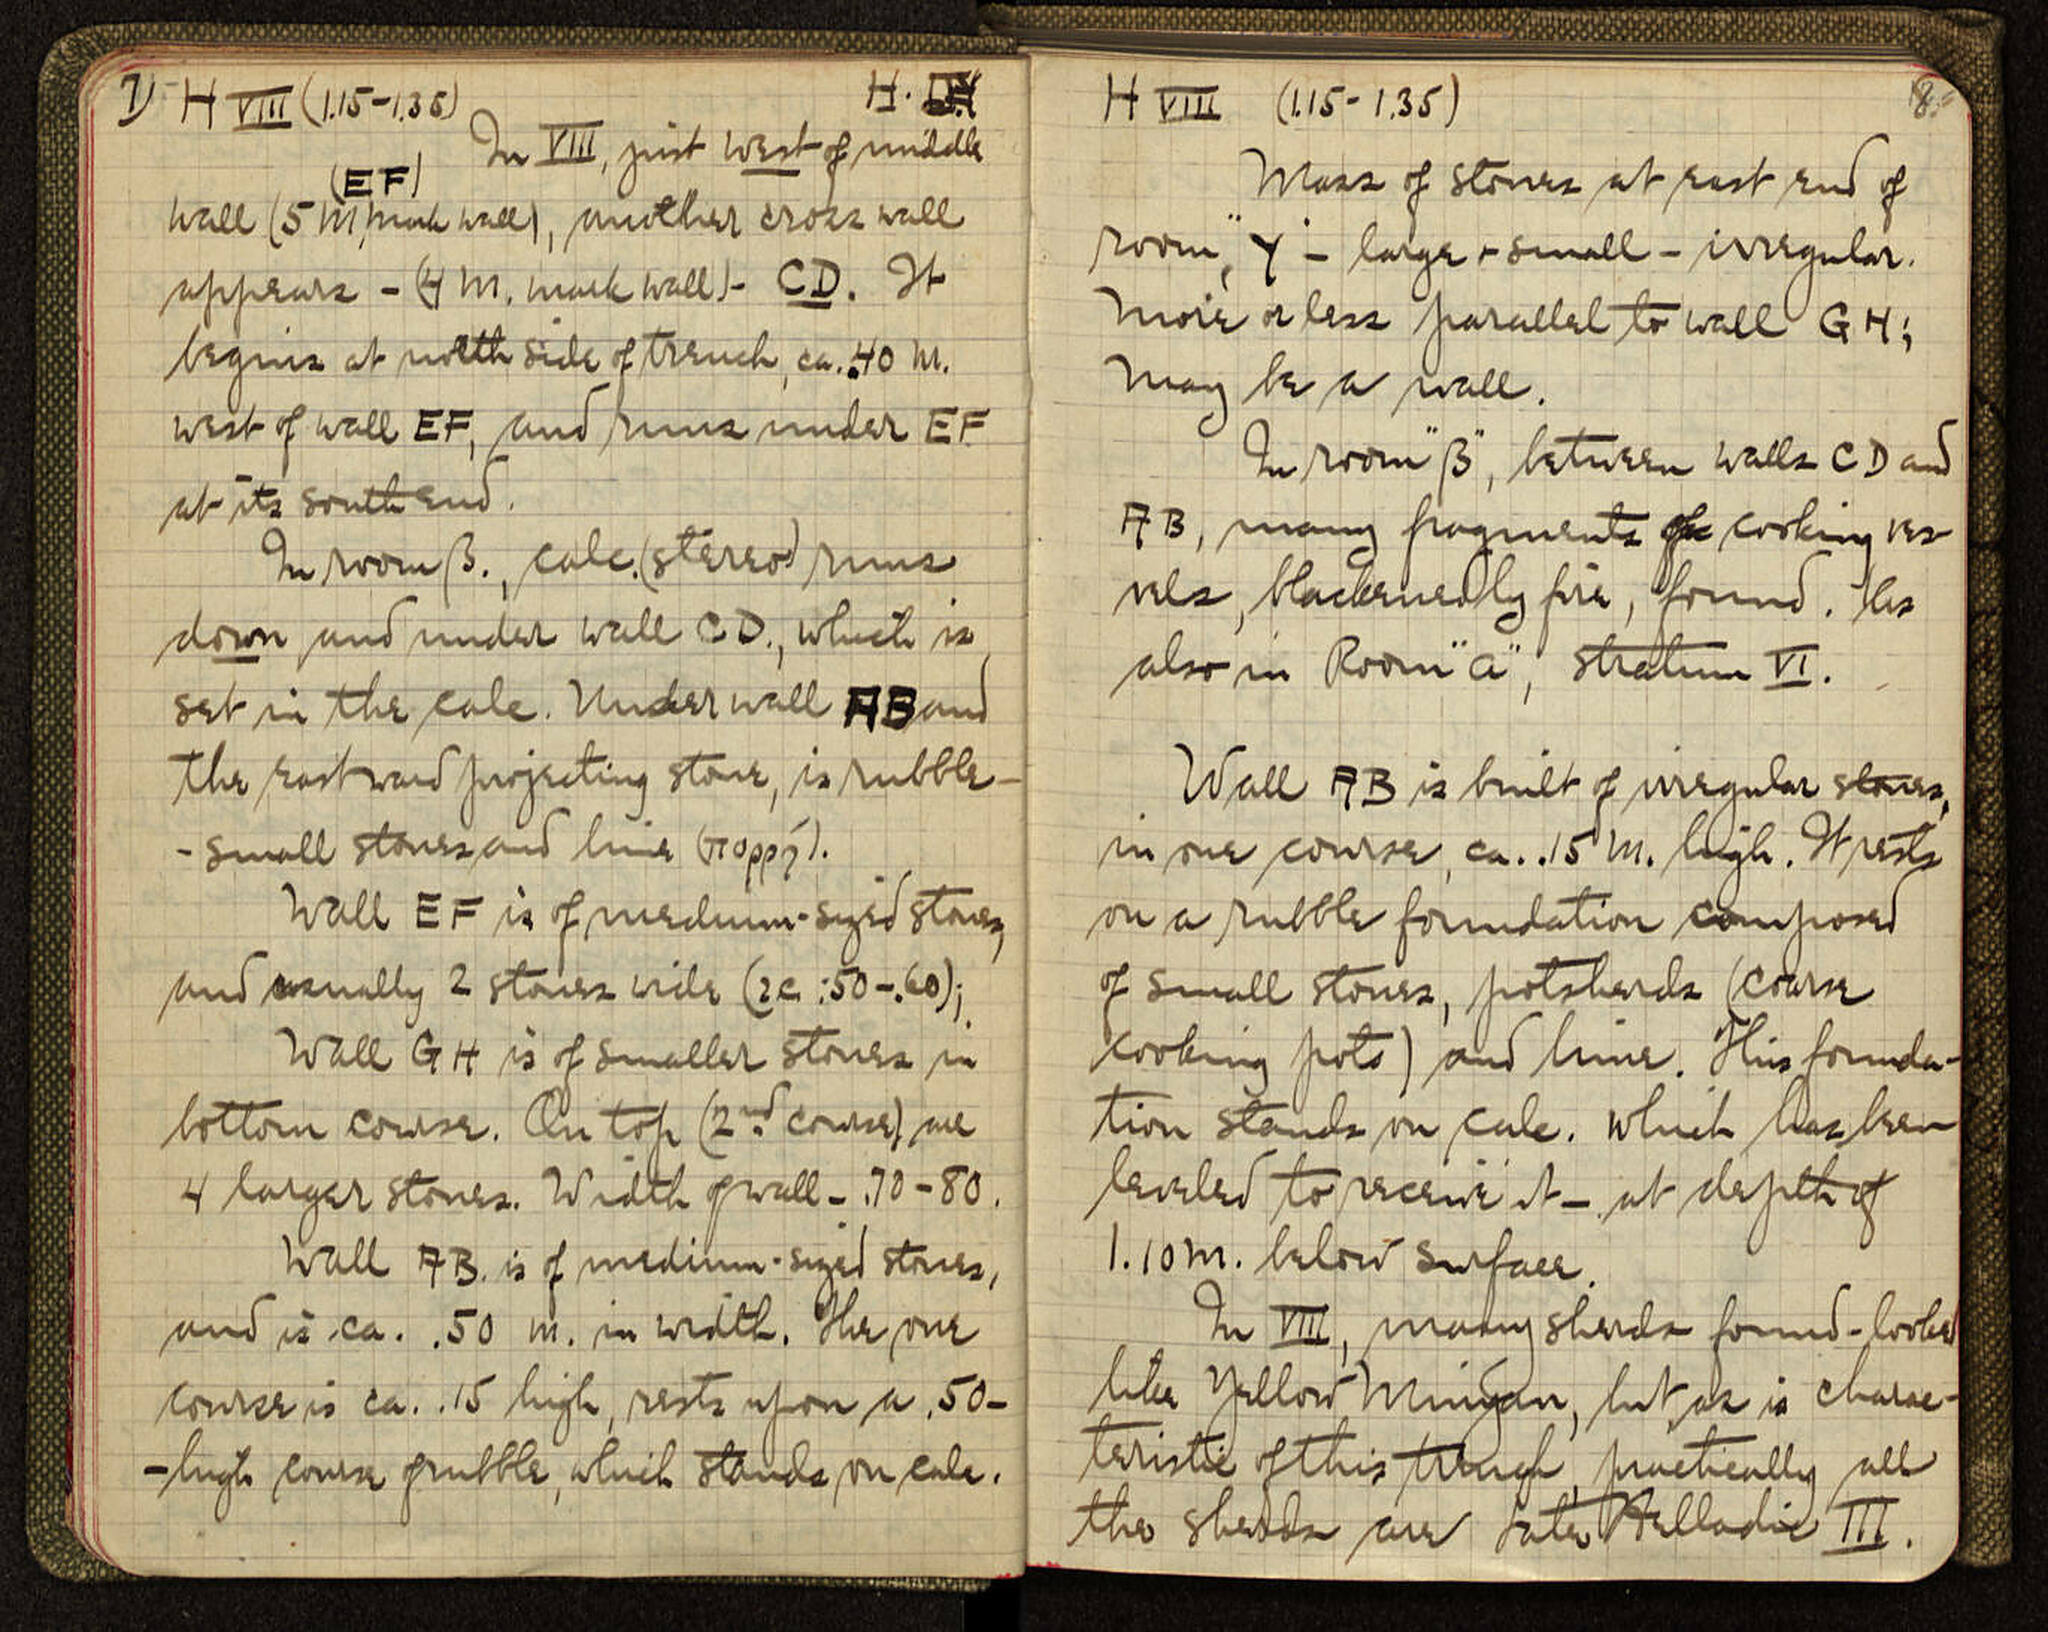 7) H VIII (1.15-1.35) H.
In VIII, just west of middle
(EF)
wall (5 m mark wall), another cross wall
appears - (4 m. mark wall) - CD. It
begins at north side of trench, ca. .40 m.
west of wall EF, and runs under EF
at its south end.
In room β., calc. (stereo) runs
down and under wall CD., which is
set in the calc. Under wall AB and
the eastward projecting stone, is rubble -
- small stones and lime
Wall EF is of medium-sized stones,
and usually 2 stones wide (.50-.60);
Wall GH is of smaller stones in
bottom course. On top (2nd course) are
4 larger stones. Width of wall - .70-80.
Wall AB. is of medium-sized stones,
and is ca. .50 m. in width. The one
course is ca. .15 high, rests upon a .50-
-high course of rubble, which stands on calc.
H VIII (1.15-1.35) 8.
Mass of stones at east end of
room "γ" - large + small - irregular.
More or less parallel to wall GH;
may be a wall.
In room "β", between walls CD and
AB, many fragments of cooking ves
sels, blackened by fire, found. As
also in Room "a", stratum VI.
Wall AB is built of irregular stones,
in one course, ca. .15 m. high. It rests
on a rubble foundation composed
of small stones, potsherds (coarse
cooking pots) and lime. This founda-
tion stands on calc. which has been
leveled to receive it - at depth of
1.10 m. below surface.
In VIII, many sherds found - looked
like Yellow Minyan, but, as is charac-
teristic of this trench, practically all
the sherds are Late Helladic III.